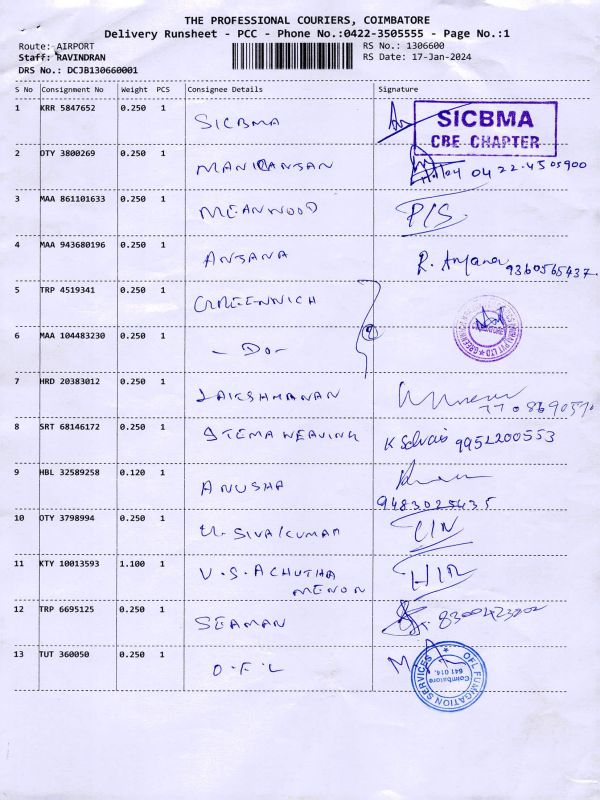 THE PROFESSIONAL COURIERS, COIMBATORE
Delivery Runsheet - PCC - Phone No.:0422-3505555 - Page No.:1
Route: AIRPORT
Staff: RAVINDRAN
DRS No.: DCJB130660001
RS No.: 1306600
RS Date: 17-Jan-2024
S No Consignment No Weight PCS Consignee Details Signature
1 KRR 5847652 0.250 1 SICBMA SICBMA
CBE CHAPTER
2 OTY 3800269 0.250 1 0422-4505900
3 MAA 861101633 0.250 1 MEANWOOD P/S.
4 MAA 943680196 0.250 1 ANJANA R. Anjana 9360565437.
5 TRP 4519341 0.250 1 GREENWICH
6 MAA 104483230 0.250 1 - Do -
7 HRD 20383012 0.250 1 LAKSHMANAN
8 SRT 68146172 0.250 1 STEMA WEAVING K Selvais 9952200553
9 HBL 32589258 0.120 1 ANUSHA
9483025435
10 OTY 3798994 0.250 1 U. SIVAKUMAR
11 KTY 10013593 1.100 1 V.S. ACHUTHA
MENON
12 TRP 6695125 0.250 1 SEAMAN
13 TUT 360050 0.250 1 O.F.L
OFL FUMIGATION SERVICES
Coimbatore
641 014.